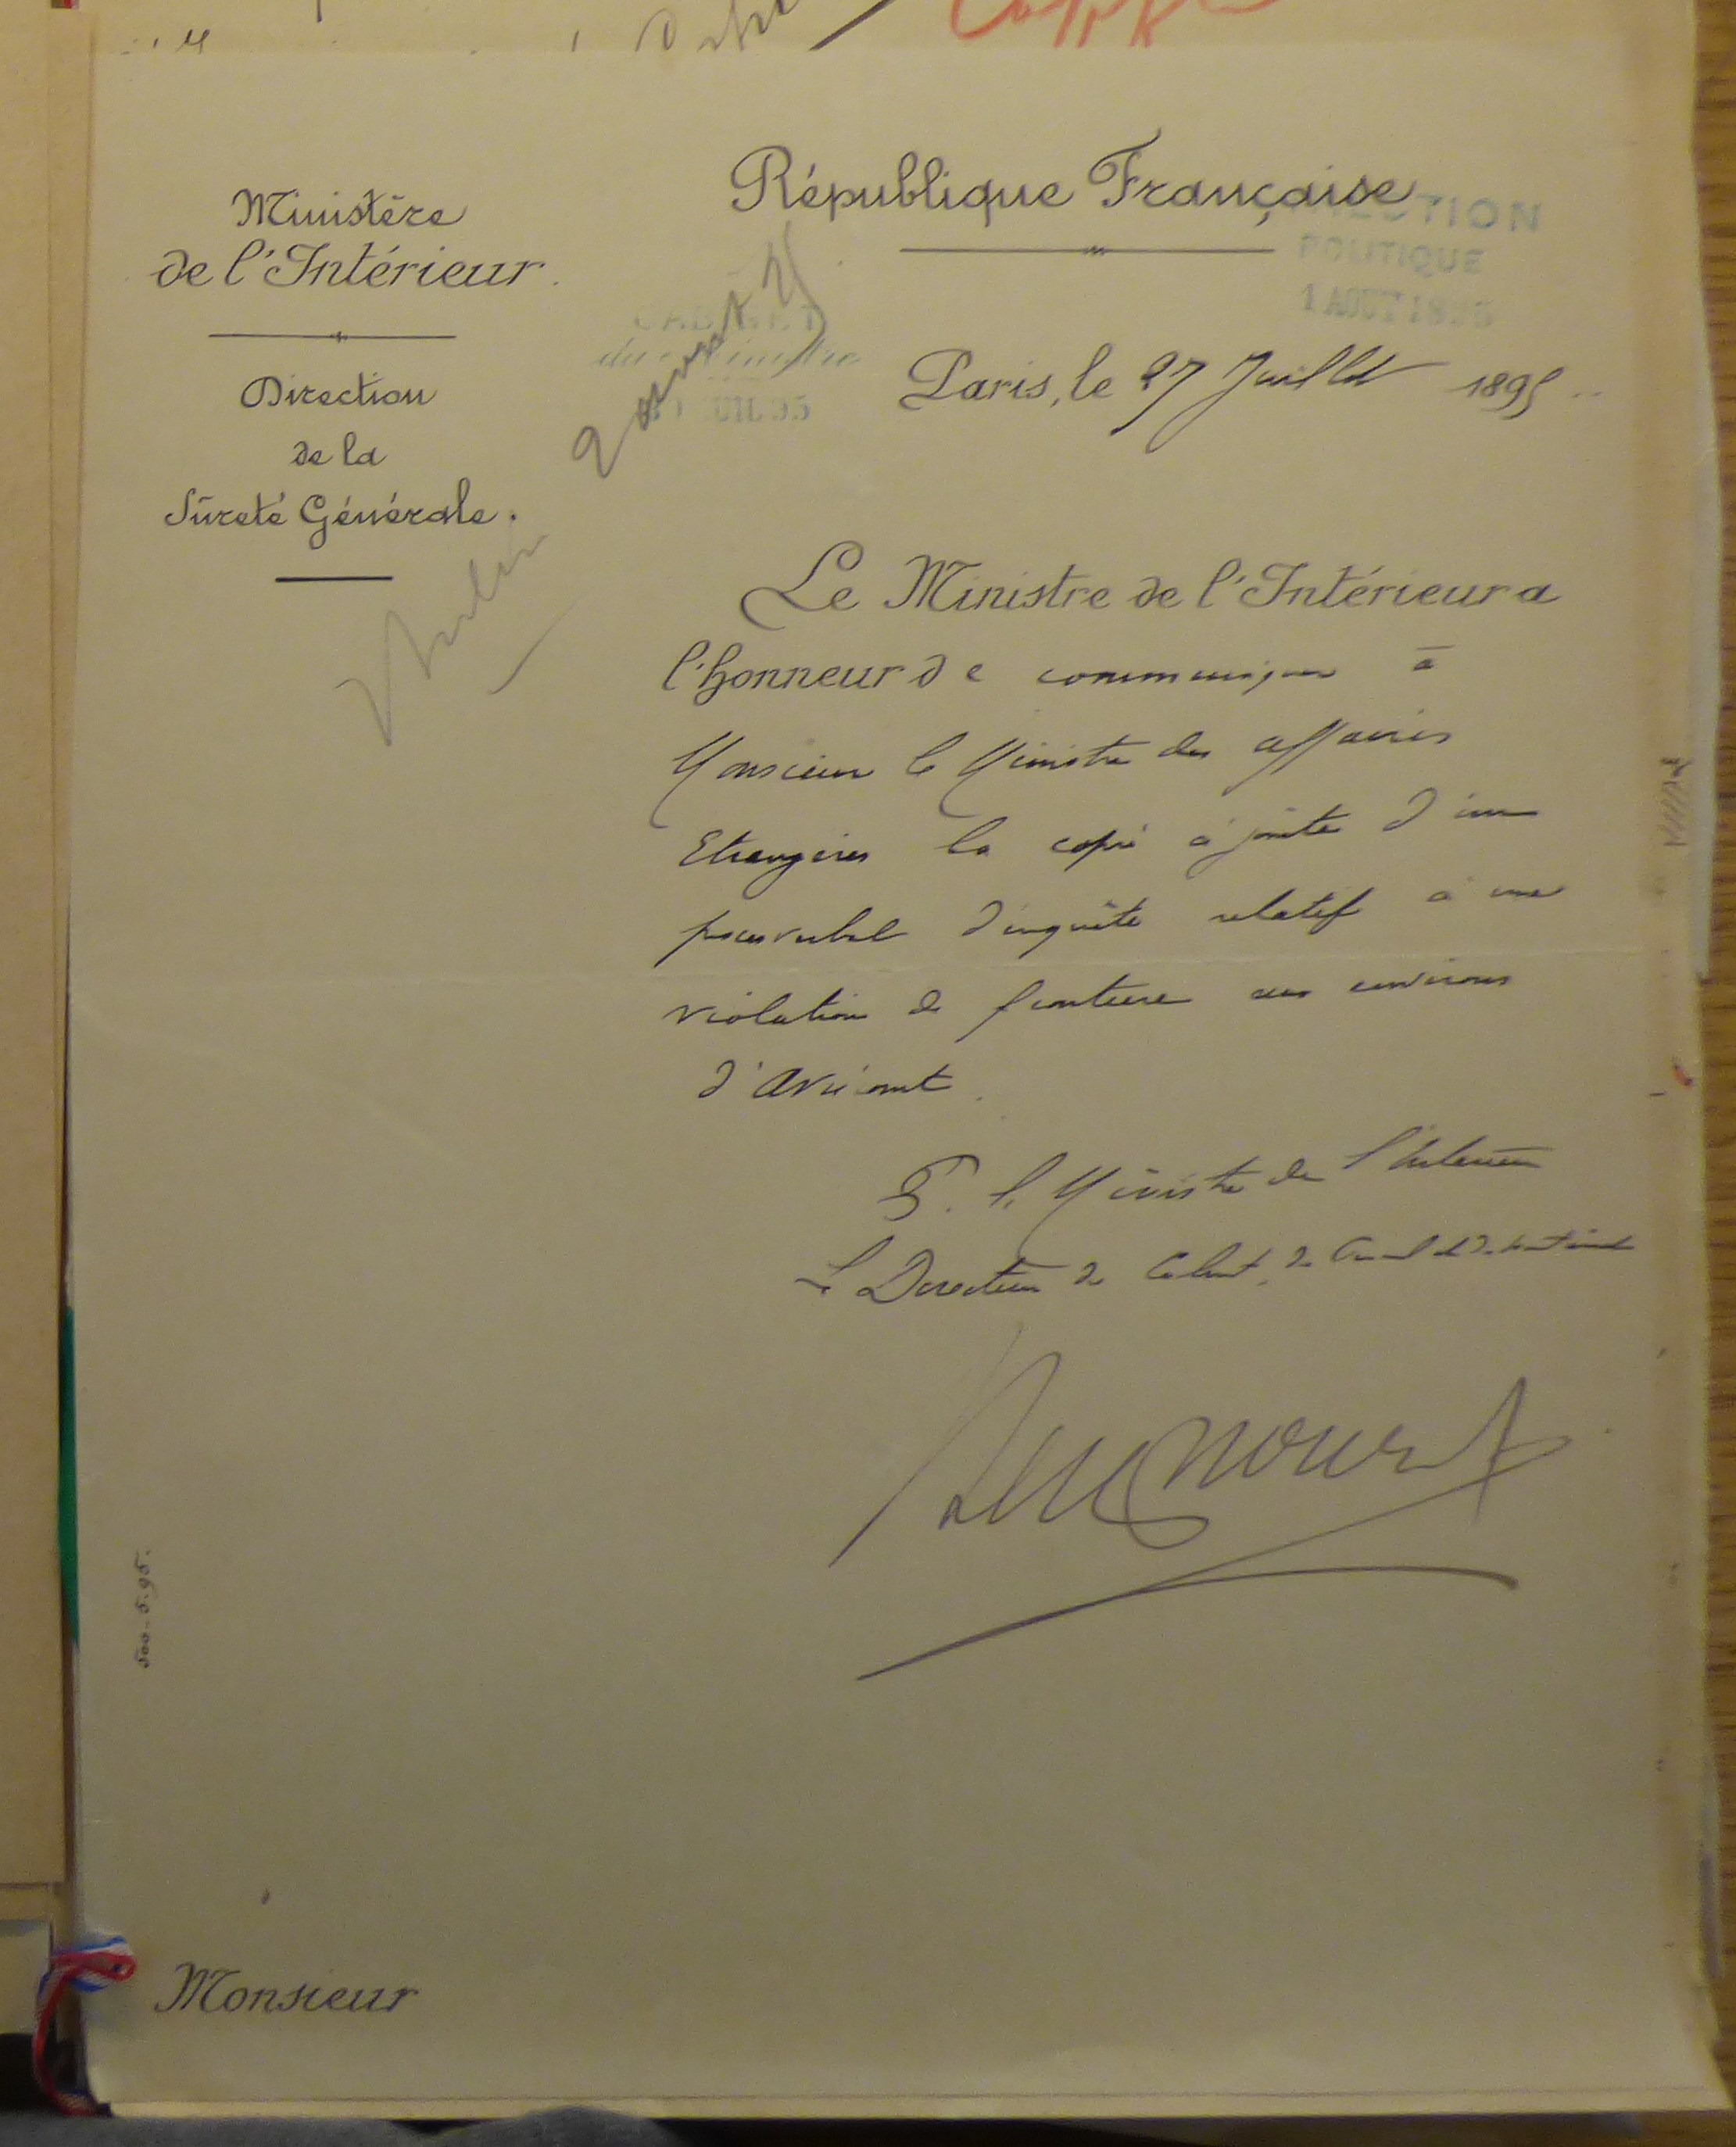 République Française
Ministère
de l'Intérieur.
Direction
de la
Sûreté Générale.
DIRECTION
POLITIQUE
1 AOUT 1895
CABINET
du Ministre
JUIL 95
Paris, le 27 Juillet 1895
Berlin
Le Ministre de l'Intérieur a
l'honneur de communiquer à
Monsieur le Ministre des affaires
Etrangères la copie ci jointe d'un
procès verbal d'enquête relatif à une
violation de frontière aux environs
d'Avricourt.
P. le Ministre de l'Intérieur
Le Directeur du Cabinet, du
500-5.95.
Monsieur